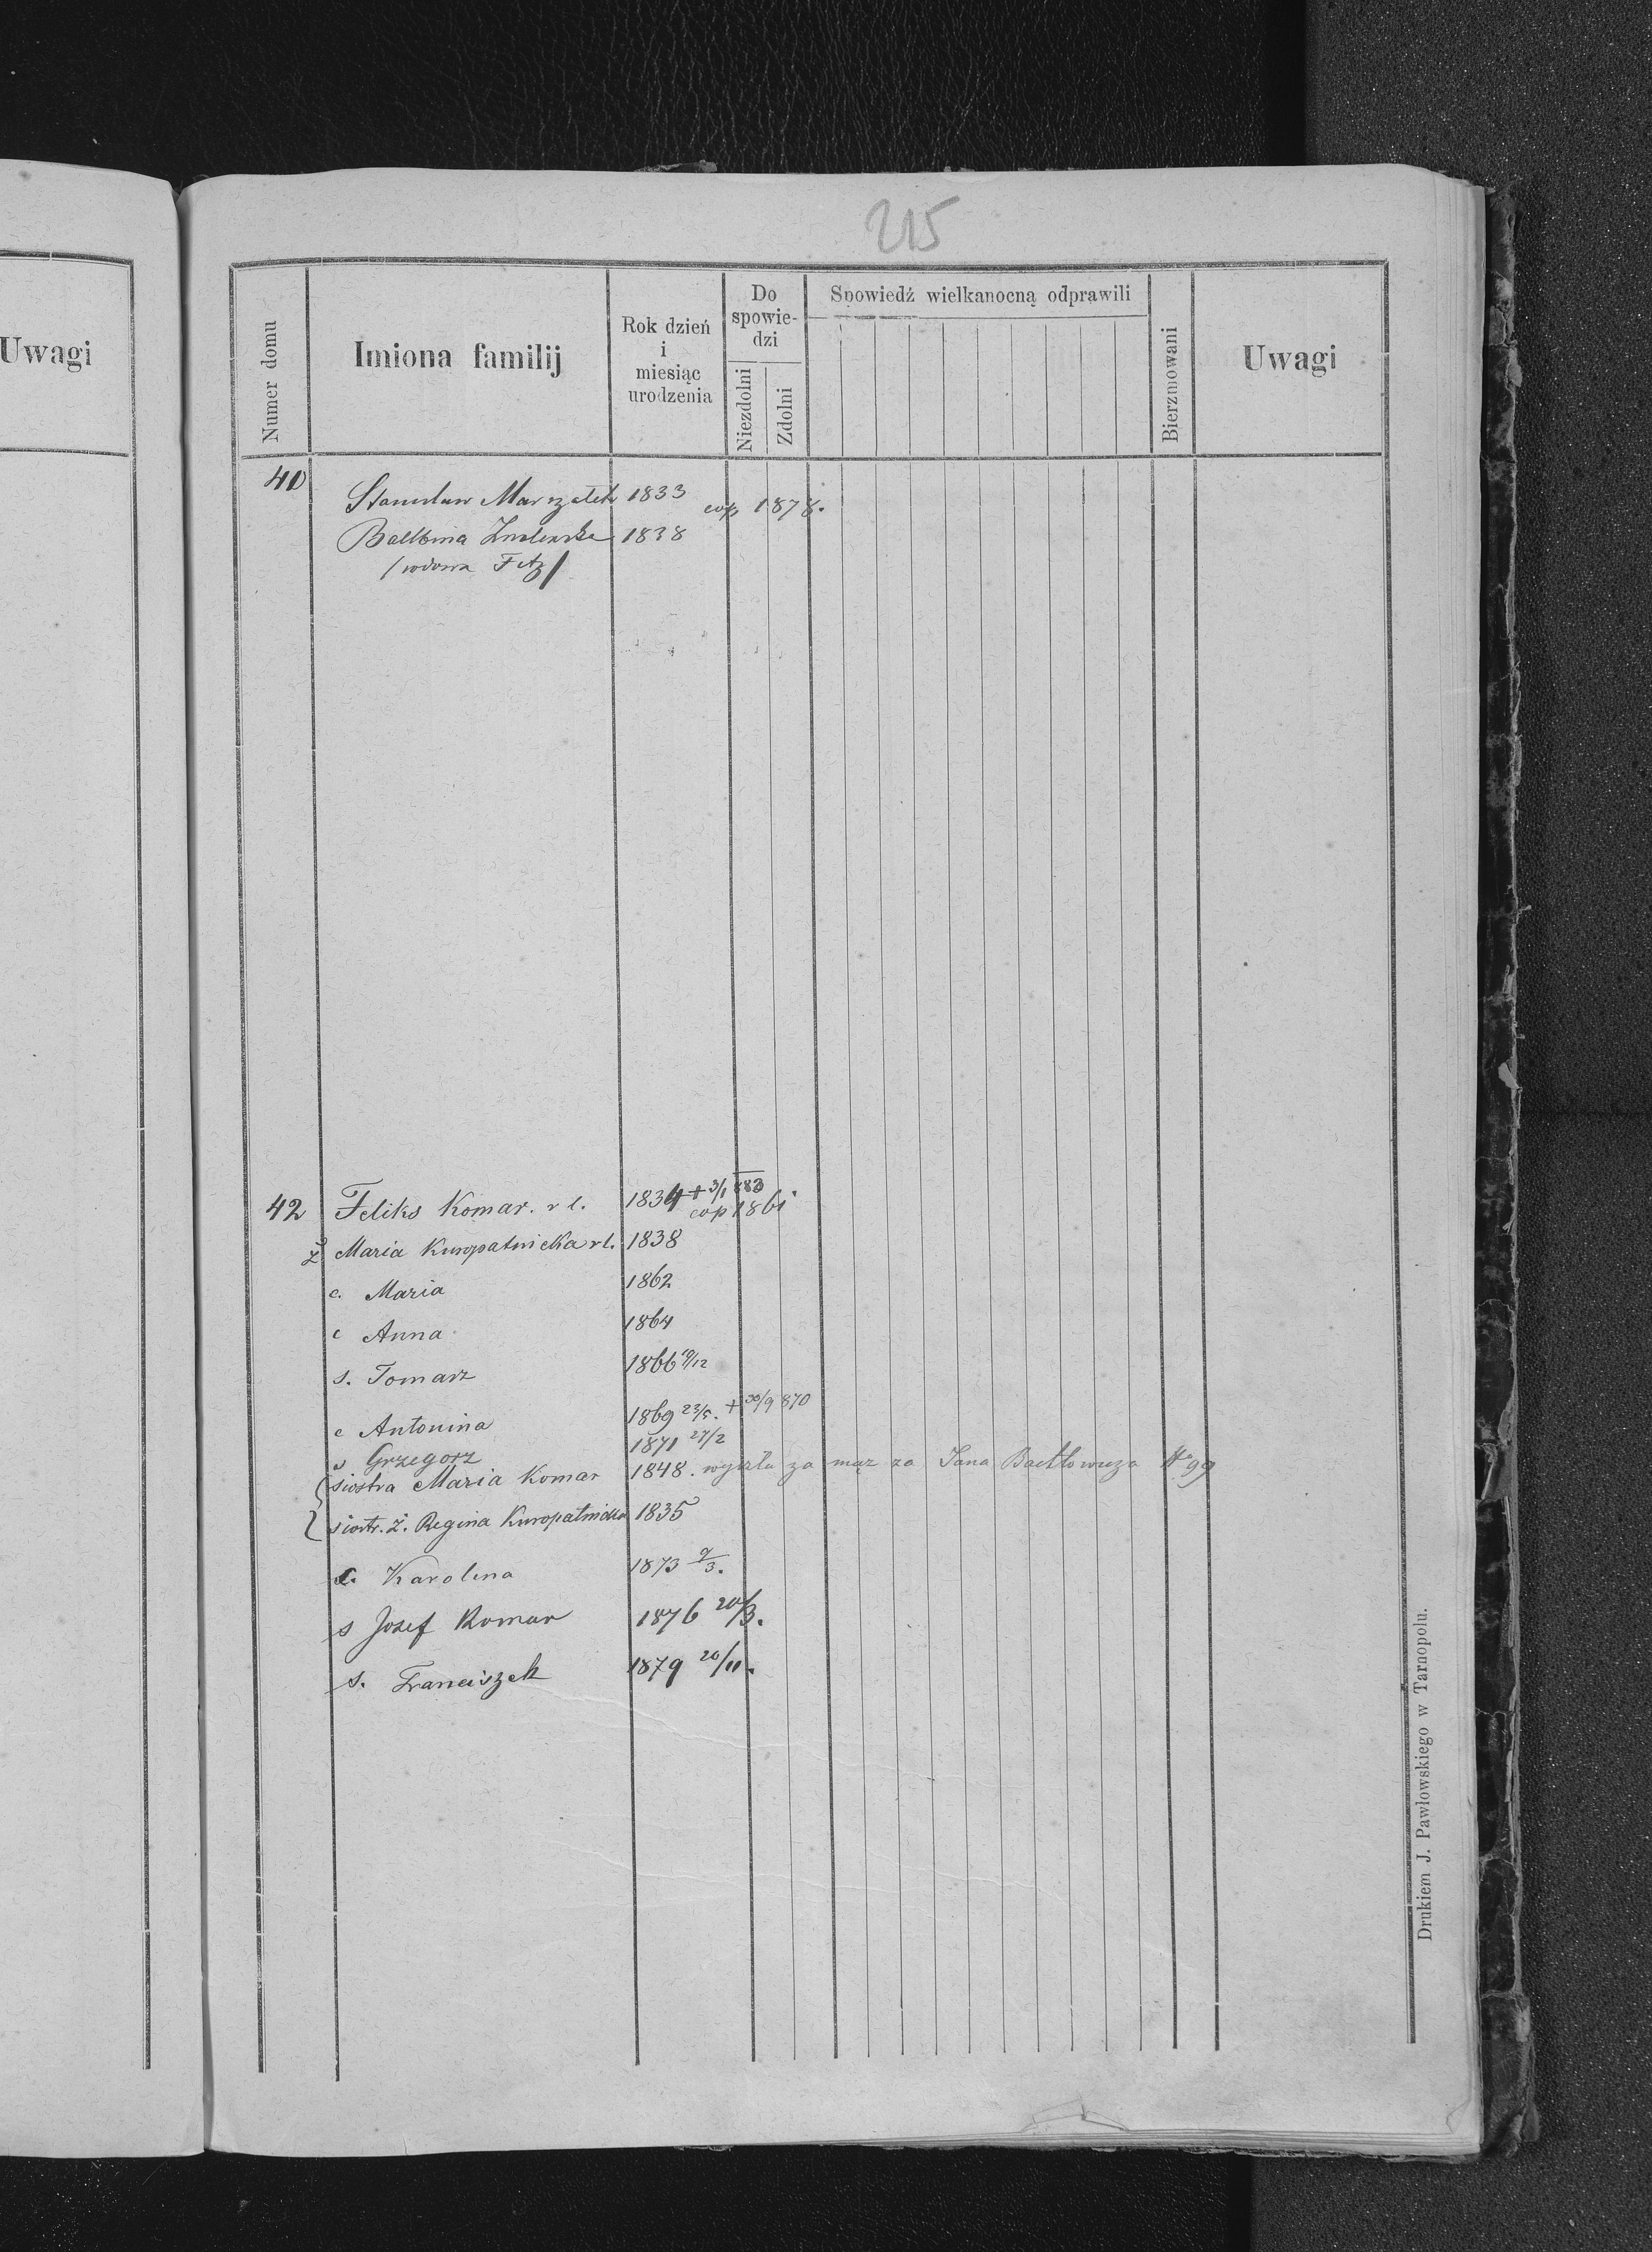 215
Uwagi
Numer domu
Imiona familij
Rok dzień
i
miesiąc
urodzenia
Do
spowie-
dzi
Niezdolni
Zdolni
Spowiedź wielkanocną odprawili
Bierzmowani
Uwagi
40 Stanisław Marszałek 1833 cop 1878.
Balbina 1838
/wdowa Fitz/
42 Feliks Komar. r l. 1834 + 3/1 883
cop 1861
ż Maria Kuropatnicka r l. 1838
c. Maria 1862
c Anna 1864
s. Tomasz 1866 /12
c Antonina 1869 23/5. + 30/9 870
s Grzegorz 1871 27/2
siostra Maria Komar 1848. wyszła za mąz za Jana No 99
siostr. ż. Regina Kuropatnicka 1835
c. Karolina 1873 9/3.
s Jozef Komar 1876 20/3.
s. Franciszek 1879 20/11.
Drukiem J. Pawłowskiego w Tarnopolu.